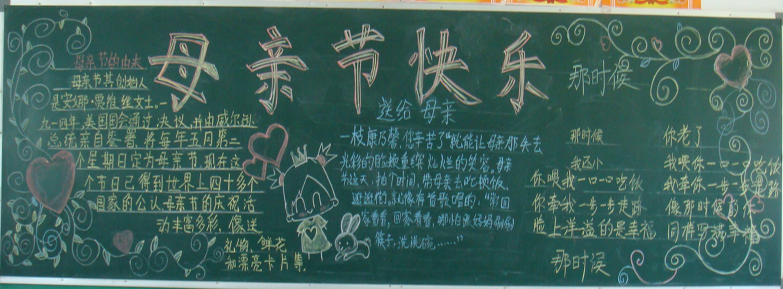 母亲节快乐
母亲节的由来
母亲节其创始人
是安娜·
一四年,美国国会通过决议,并由威尔逊
总统亲自签署,将每年五月第二
个星期日定为母亲节,现在这
个节日已得到世界上四十多个
国家的公认,母亲节的庆祝活
动丰富多彩,像送
礼物,鲜花
和漂亮卡片等.
送给母亲
一枝康乃馨,一句“辛苦了”就能让母亲那失去
光彩的脸
节这天,抽个时间,带母亲去吃顿饭,
逛逛街,就像
常看看,回家看看,哪怕
筷子,洗洗碗……”
那时候
那时候
我还小
你喂我一口一口吃饭
你牵我一步一步走路
脸上洋溢的是幸福
你老了
我喂你一口一口吃
我牵你一步一步走
像那时候
同样写满幸福
那时候